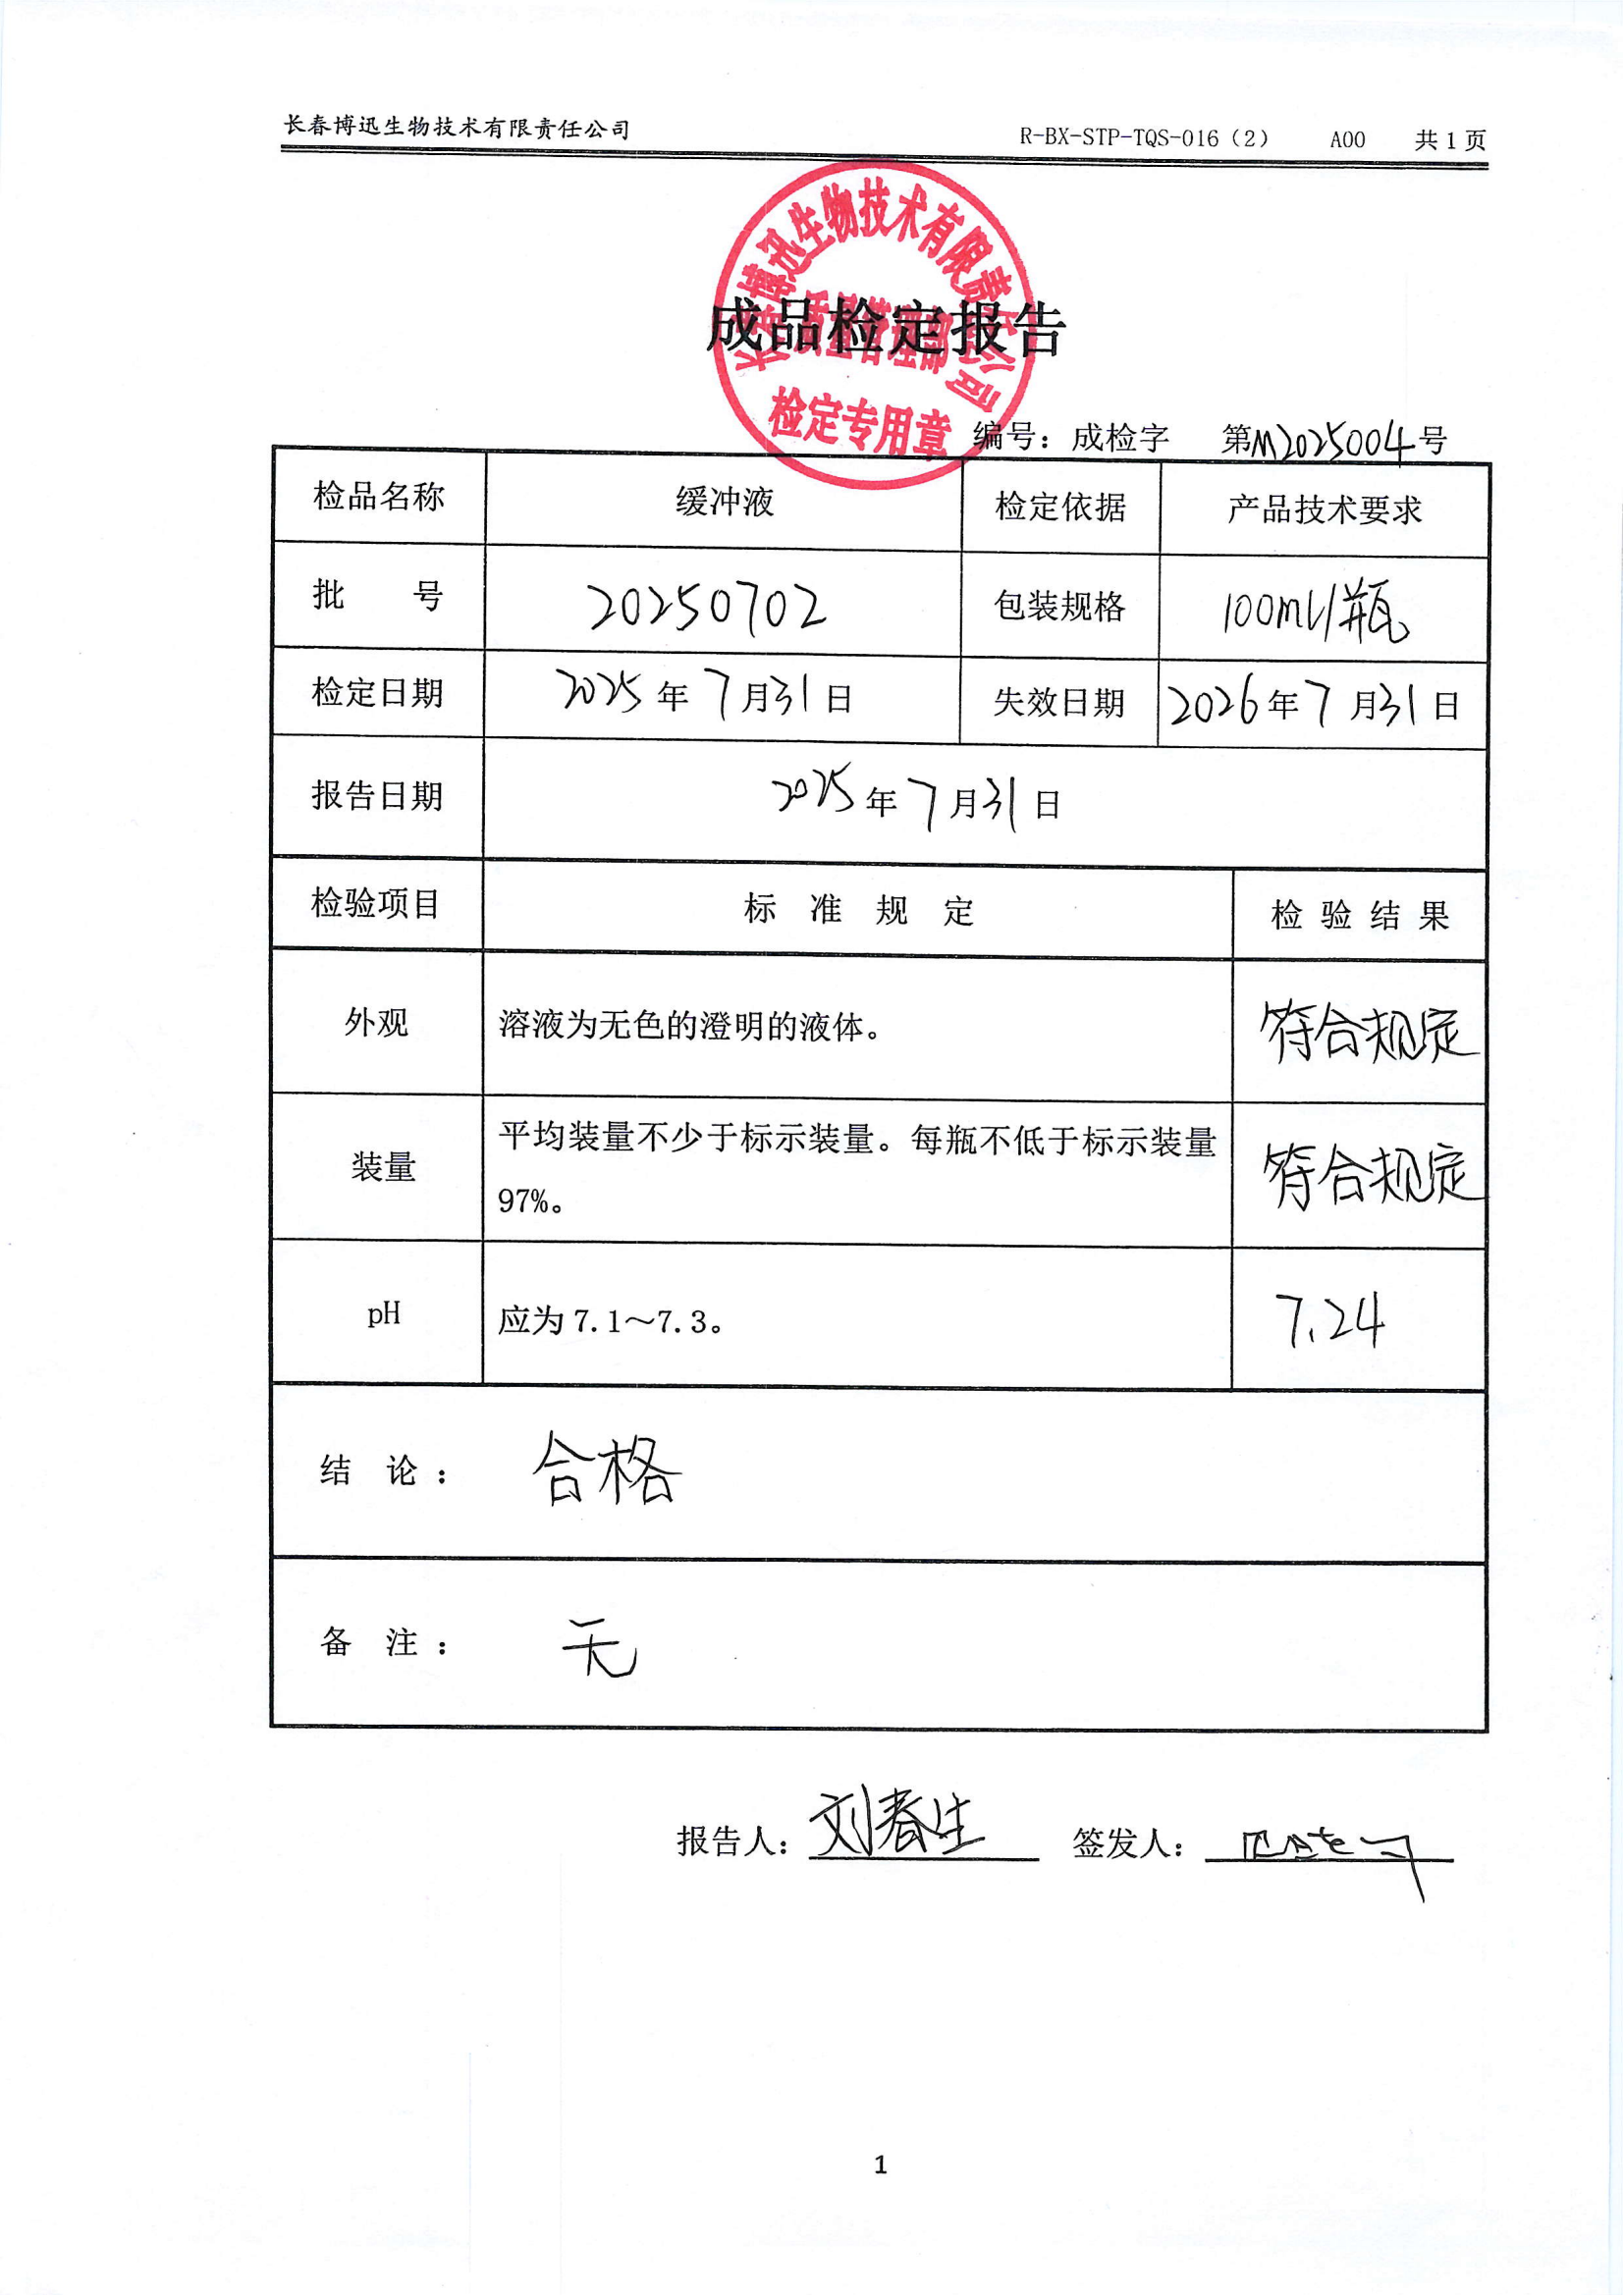 长春博迅生物技术有限责任公司 R-BX-STP-TQS-016（2） A00 共 1 页
长春博迅生物技术有限责任公司
质量管理部
检定专用章
成品检定报告
编号：成检字 第M2025004号
检品名称 缓冲液 检定依据 产品技术要求
批 号 20250702 包装规格 100ml/瓶
检定日期 2025年7月31日 失效日期 2026年7月31日
报告日期 2025年7月31日
检验项目 标 准 规 定 检 验 结 果
外观 溶液为无色的澄明的液体。 符合规定
装量 平均装量不少于标示装量。每瓶不低于标示装量
97%。 符合规定
pH 应为 7.1～7.3。 7.24
结 论： 合格
备 注： 无
报告人：刘春生 签发人：
1